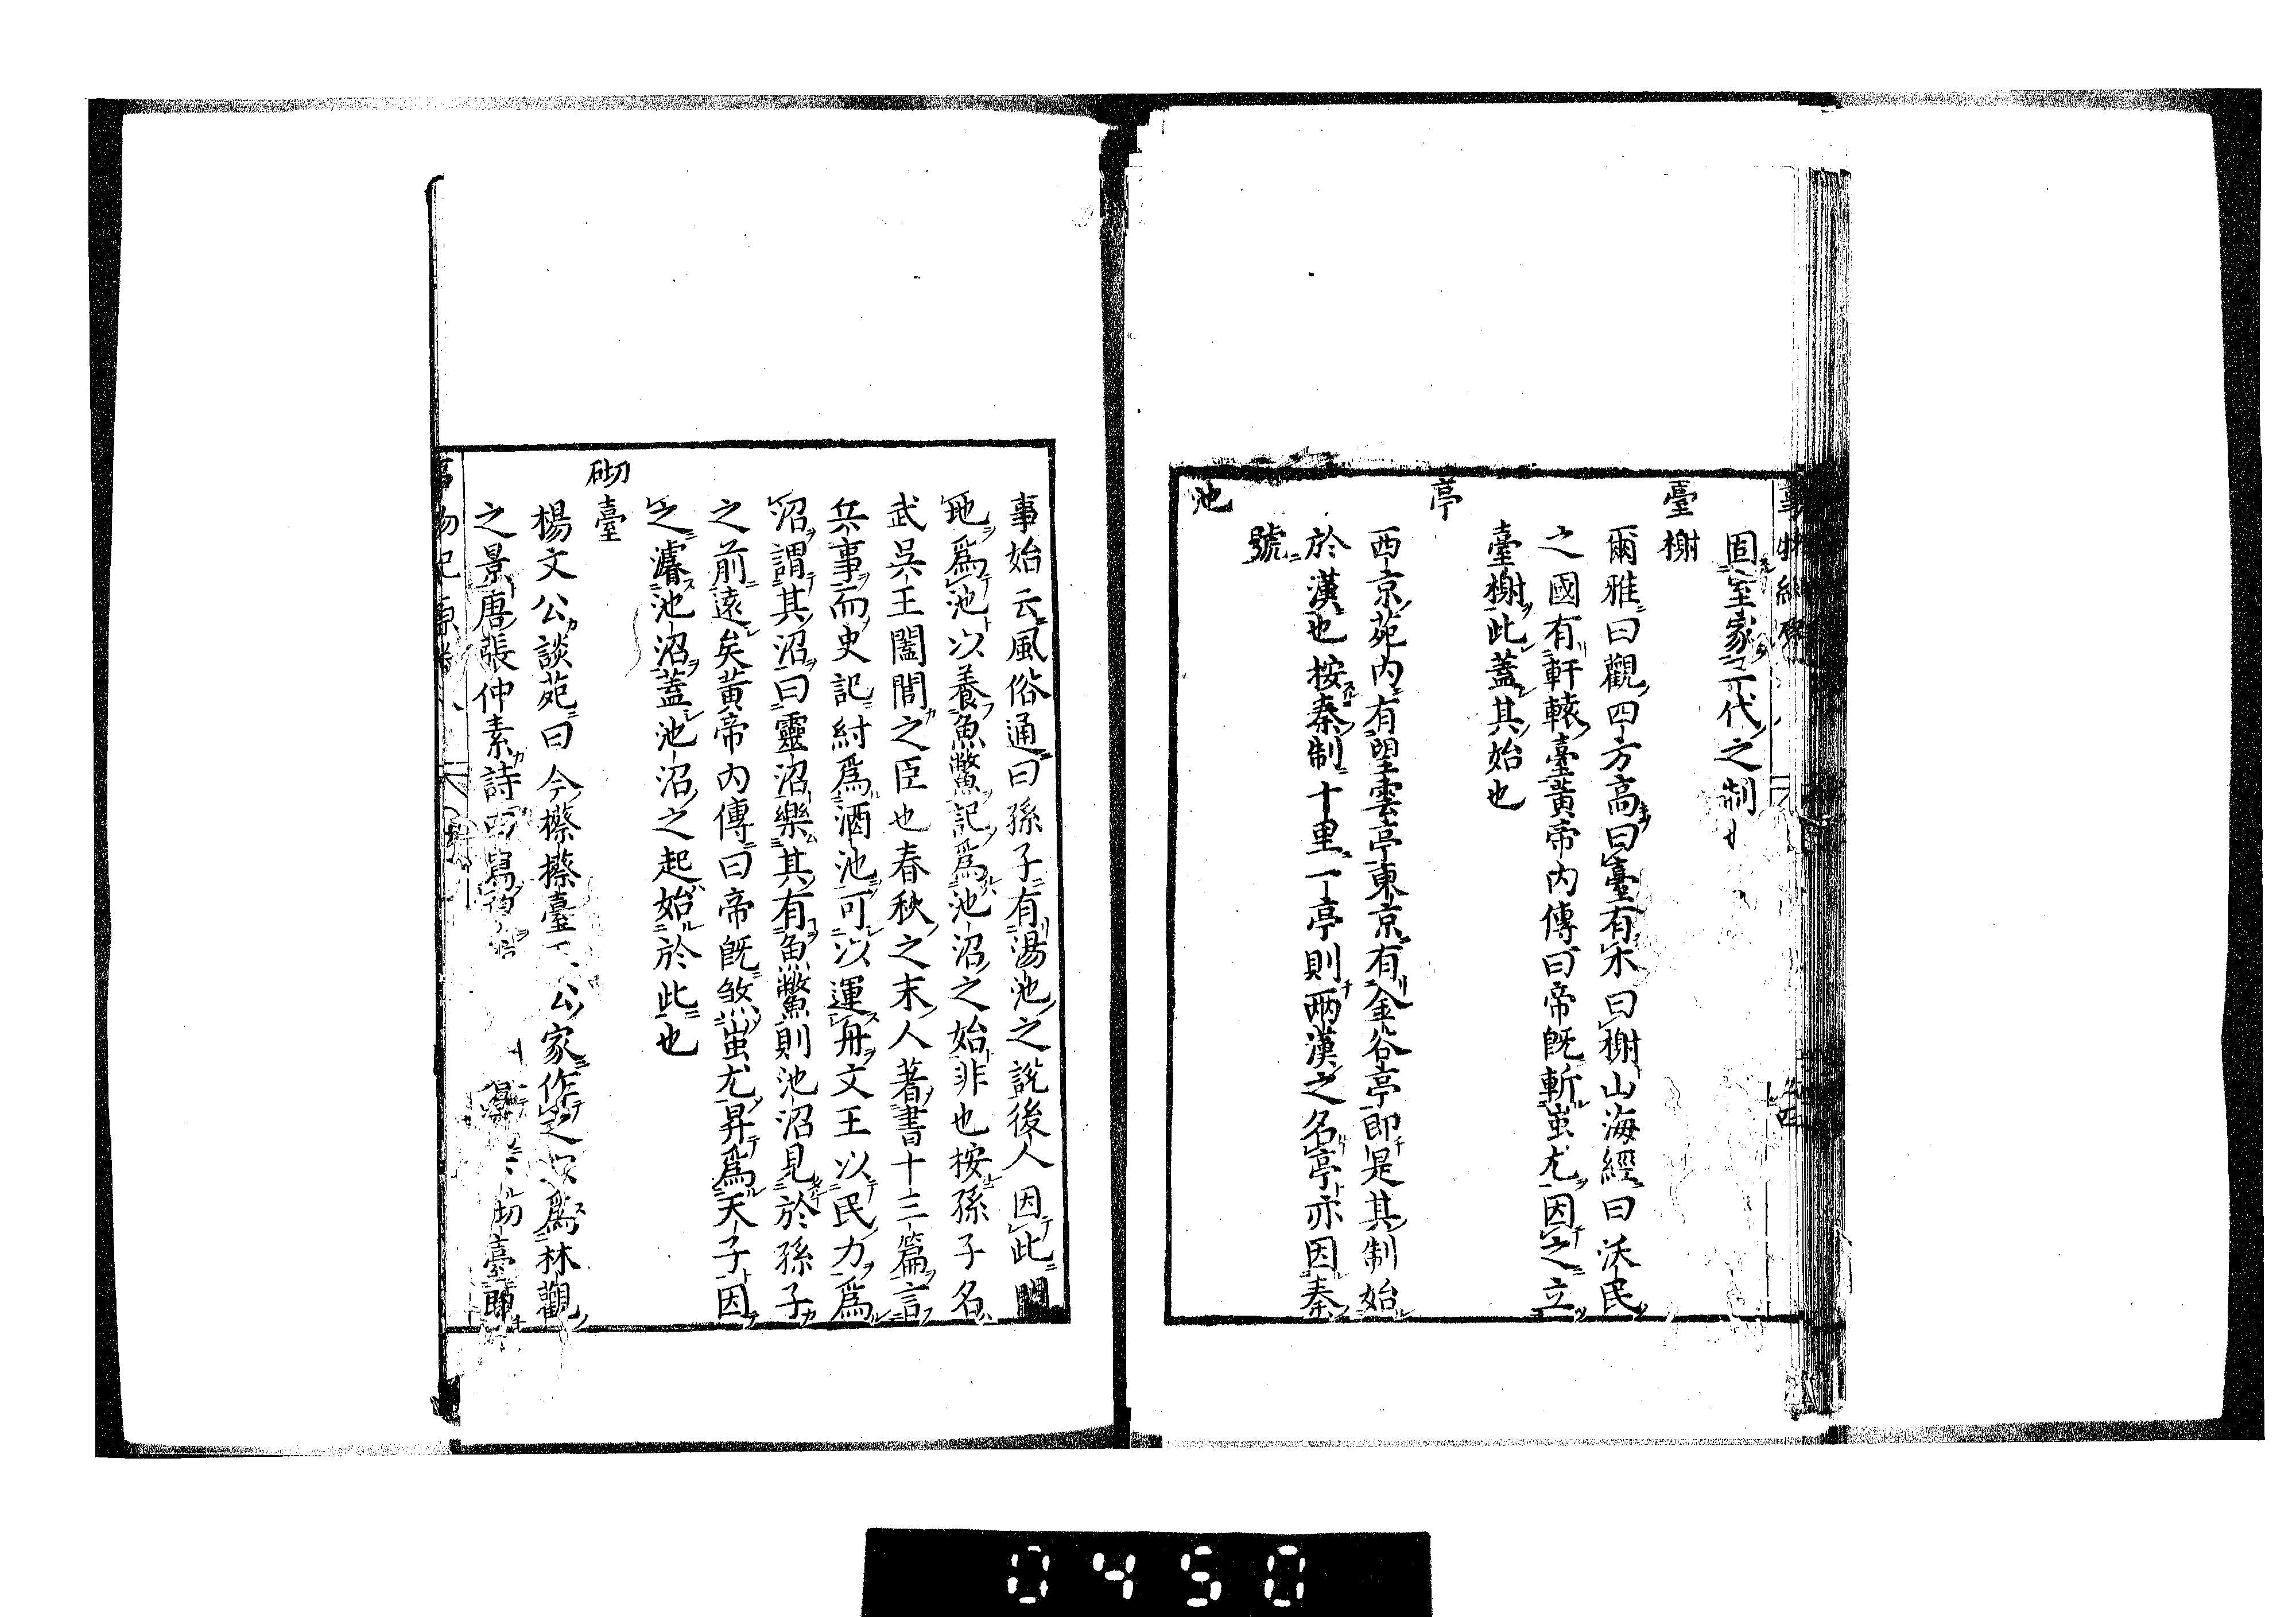 固室家三代之制
臺榭
爾雅曰觀四方高曰臺有木曰榭山海經曰沃民
之國有軒轅臺黃帝內傳曰帝既斬蚩尤因之立
臺榭此蓋其始也
亭
西京苑內有望雲亭東京有金谷亭即是其制始
於漢也按秦制十里一亭則兩漢之名亭亦因秦
號
池
事始云風俗通曰孫子有湯池之說後人因此開
地爲池以養魚鱉記爲池沼之始非也按孫子名
武吳王闔閭之臣也春秋之末人著書十三篇言
兵事而史記紂爲酒池可以運舟文王以民力爲
沼謂其沼曰靈沼樂其有魚鱉則池沼見於孫子
之前遠矣黃帝內傳曰帝既煞蚩尤昇爲天子因
之濬池沼蓋池沼之起始於此也
砌臺
楊文公談苑曰今擦擦臺公家作之以爲林觀
之景唐張仲素詩曰寫砌臺即
事物紀原
0450